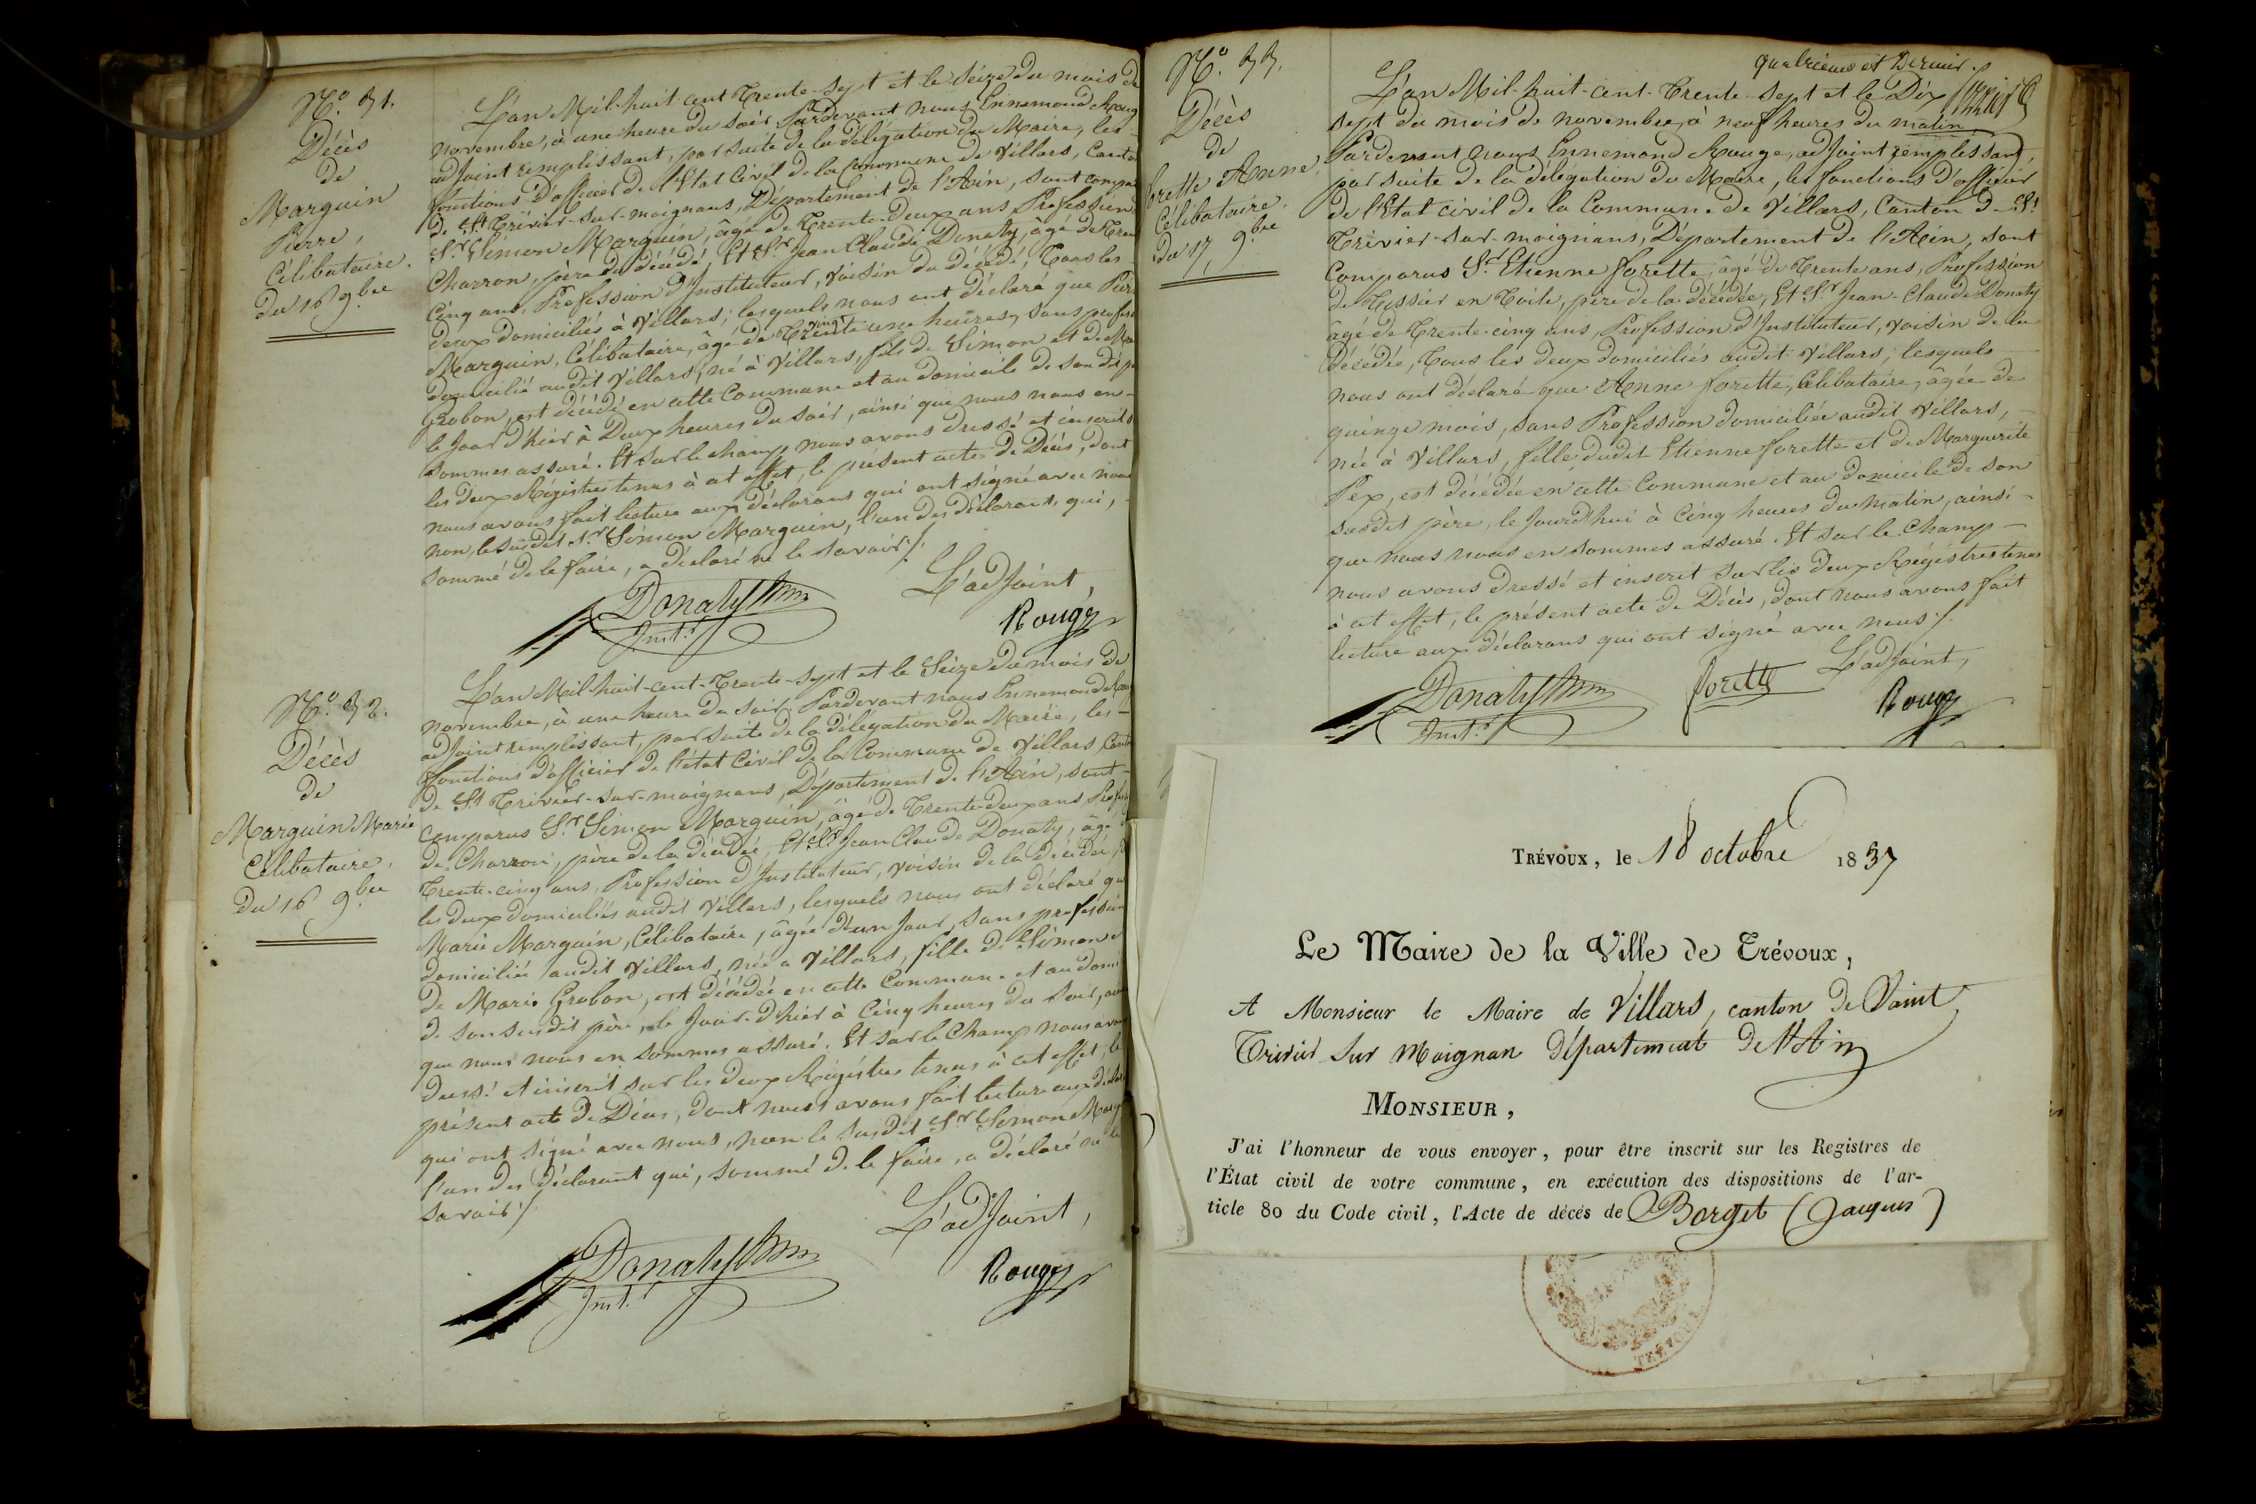 N.o 51.
Décès
de
Marguin
Pierre,
Célibataire.
du 16 9.bre
L'an Mil-huit-cent Trente-Sept et le Seize du mois de
novembre, à une heure du soir Pardevant nous Ennemond Roug
adjoint remplissant, par suite de la délégation du Maire, les
fonctions d'officier de l'Etat Civil de la Commune de Villars, Canto
de St Trivier-sur-moignans, Département de l'Ain, sont compa
Sr. Simon Marguin, âgé de Trente-Deux ans Profession
Charron, père du décédé, Et Sr. Jean Claude Donaty, âgé de Tren
Cinq ans, Profession d'Instituteur, voisin du décédé, Tous les
deux domiciliés à Villars; lesquels nous ont déclaré que Pier
Marguin, Célibataire, âgé de vingt une heures, sans profes
domicilié audit Villars, né à Villars, fils de Simon et de Ma
Grobon, est décédé en cette Commune et au domicile de son dit p
le jour d'hier à Deux heures du soir, ainsi que nous nous en
sommes assuré. Et sur le champ nous avons dressé et inscrit s
les deux Régistres tenus à cet effet, le présent acte de Décès, dont
nous avons fait lecture aux déclarans qui ont signé avec nous
non, le susdit Sr. Simon Marguin, l'un des déclarans, qui,
sommé de le faire, a déclaré ne le savoir /.
Donaty L'adjoint,
Inst.r Rouge
N.o 52.
Décès
de
Marguin Marie
Célibataire.
Du 16 9.bre
L'an Mil-huit-cent-Trente-Sept et le Seize du mois de
novembre, à une heure du soir. Pardevant nous Ennemond Roug
adjoint remplissant, par suite de la délégation du Maire, les
fonctions d'officier de l'état Civil de la Commune de Villars, Canto
de St Trivier-sur-moignans, Département de l'Ain, sont
Comparus Sr. Simon Marguin, âgé de Trente-deux ans, Profes
de Charron, père de la décédée, Et Sr. Jean Claude Donaty, âgé
Trente-cinq ans, Profession d'Instituteur, voisin de la décédée,
les deux domiciliés audit Villars, lesquels nous ont déclaré qu
Marie Marguin, Célibataire, âgée d'un jour, sans profession
domiciliée audit Villars, née à Villars, fille de Simon e
de Marie Grobon, est décédée en cette Commune et au domi
de son susdit père, le jour d'hier à Cinq heures du soir,
que nous nous en sommes assuré. Et sur le Champ nous avons
dressé et inscrit sur les deux Régistres tenus à cet effet, le
présent acte de Décès, dont nous avons fait lecture aux décla
qui ont signé avec nous, non le susdit Sr. Simon Marg
l'un des déclarant qui, sommé de le faire, a déclaré ne le
savoir /.
Donaty L'adjoint,
Inst.r Rouge
quatrième et Dernier.
N.o 53.
Décès
de
forette Anne,
Célibataire.
du 17 9.bre
L'an Mil-huit-cent-Trente-sept et le Dix
sept du mois de novembre, à neuf heures du matin
Pardevant nous Ennemond Rouge, adjoint remplissant,
par suite de la délégation du Maire, les fonctions d'officier
de l'Etat civil de la Commune de Villars, Canton de St.
Trivier-sur-moignans, Département de l'Ain, sont
Comparus Sr. Etienne forette, âgé de Trente ans, Profession
de Tissier en Toile, père de la décédée, Et Sr. Jean-Claude Donaty
âgé de Trente-cinq ans, Profession d'Instituteur, voisin de la
décédée, Tous les deux domiciliés audit Villars; lesquels
nous ont déclaré que Anne forette, Célibataire, âgée de
quinze mois, sans Profession domiciliée audit Villars,
née à Villars, fille dudit Etienne forette et de Marguerite
Pex, est décédée en cette Commune et au domicile de son
susdit père, le jourdhui à Cinq heures du matin, ainsi
que nous nous en sommes assuré. Et sur le Champ
nous avons dressé et inscrit sur les deux Régistres tenus
à cet effet, le présent acte de Décès, dont nous avons fait
lecture aux déclarans qui ont signé avec nous /.
Donaty forette L'adjoint,
Inst.r Rouge
TRÉVOUX, le 18 octobre 1837
Le Maire de la Ville de Trévoux,
A Monsieur le Maire de Villars, canton de Saint
Trivier sur Moignan département de l'Ain
MONSIEUR,
J'ai l'honneur de vous envoyer, pour être inscrit sur les Registres de
l'État civil de votre commune, en exécution des dispositions de l'ar-
ticle 80 du Code civil, l'Acte de décès de Borget (Jacques)
TRÉVOUX